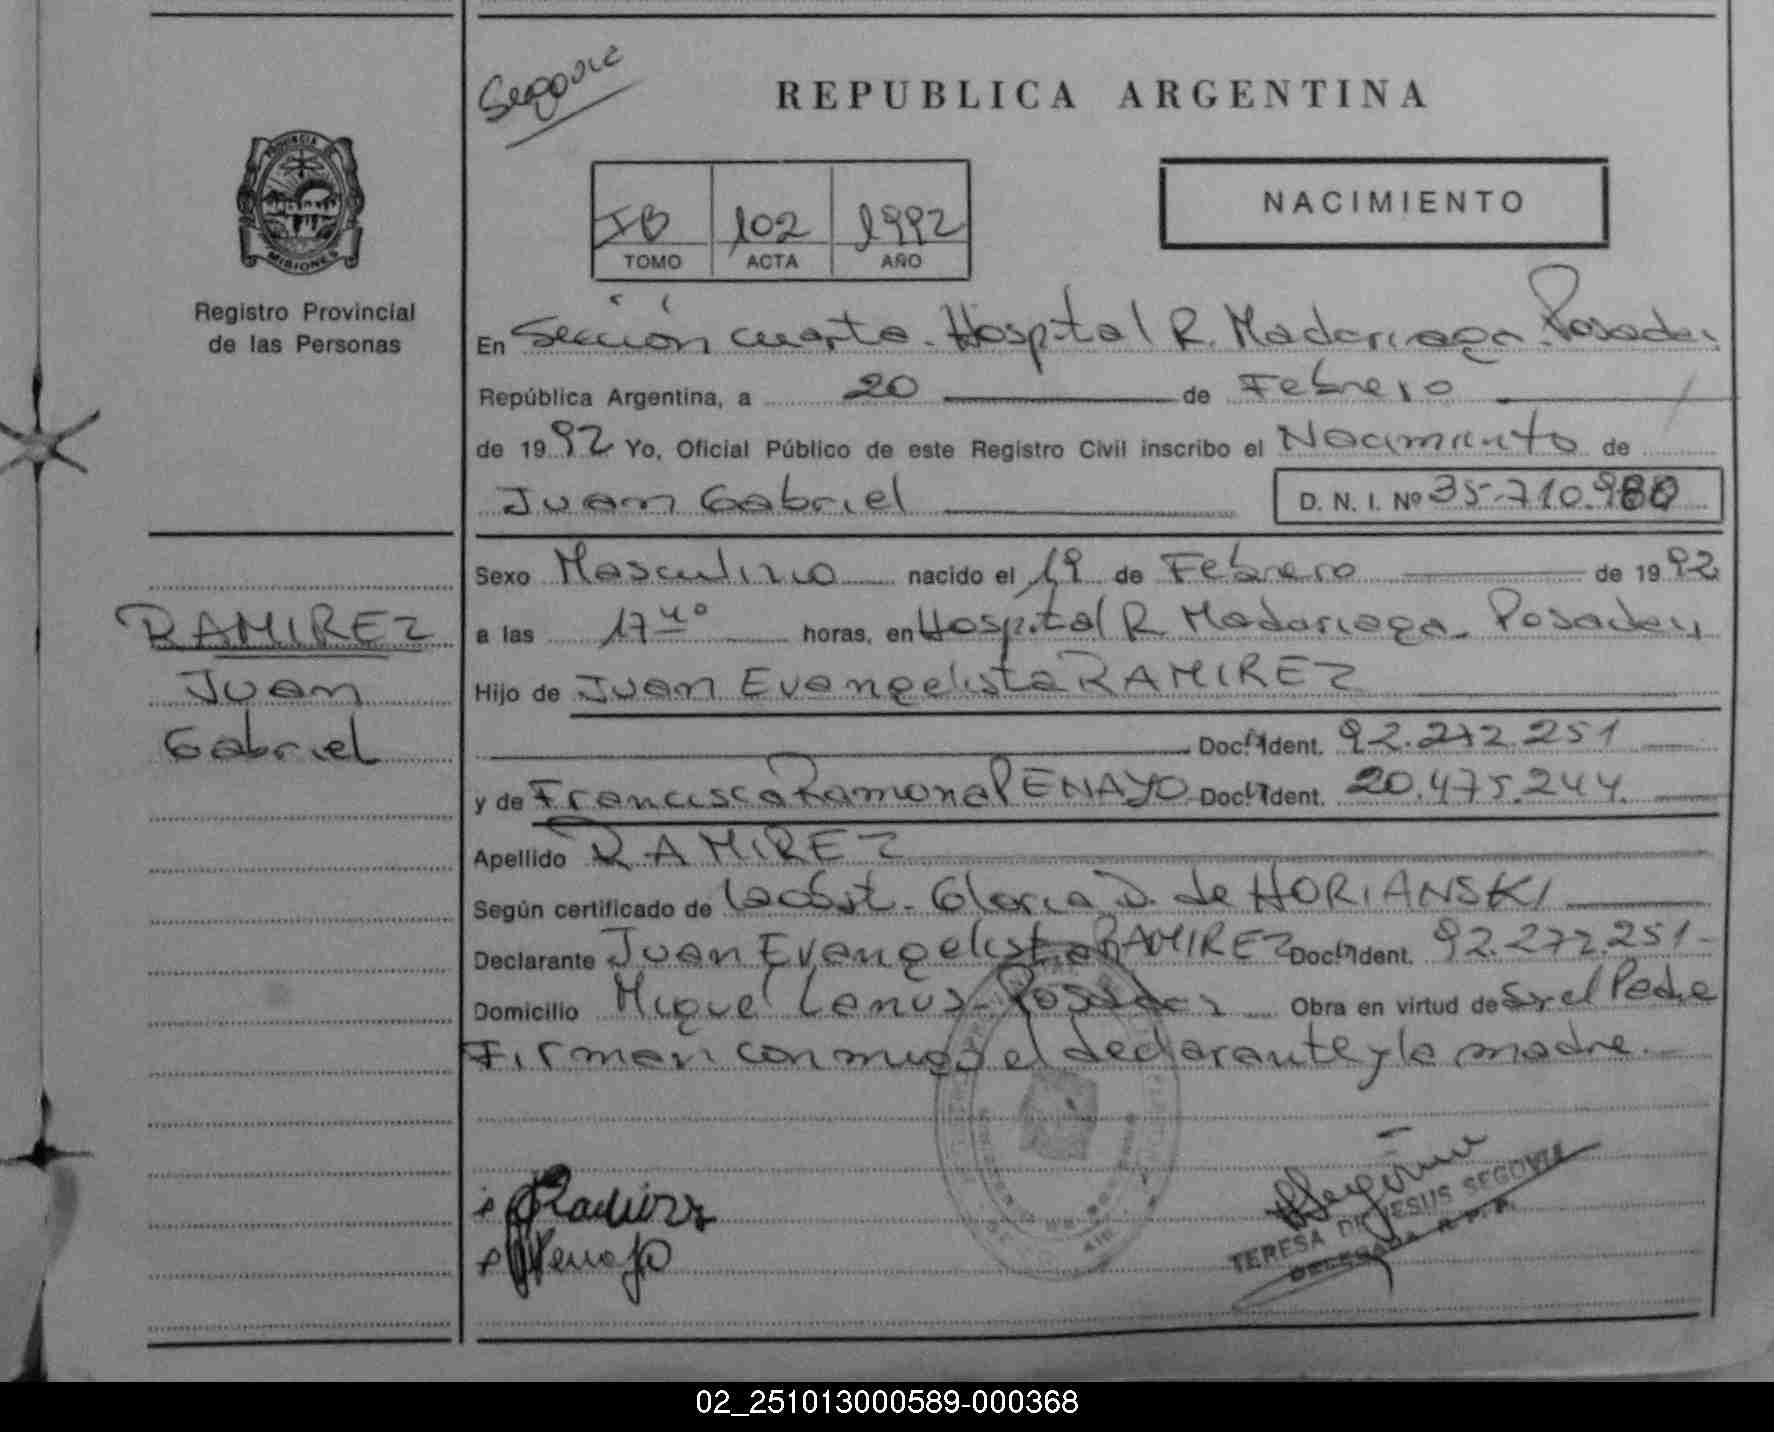 Segovia
REPUBLICA ARGENTINA
PROVINCIA DE
MISIONES
Registro Provincial
de las Personas
IB 102 1992
TOMO ACTA AÑO
NACIMIENTO
En Sección cuarta. Hospital R. Madariaga. Posadas
República Argentina, a 20 de Febrero
de 1992 Yo, Oficial Público de este Registro Civil inscribo el Nacimiento de
Juan Gabriel D. N. I. Nº 35.710.980
Sexo Masculino nacido el 19 de Febrero de 1992
a las 17 40 horas, en Hospital R. Madariaga. Posadas
RAMIREZ
Juan
Gabriel
Hijo de Juan Evangelista RAMIREZ
Doc. Ident. 92.272.251
y de Francisca Ramona PENAYO Doc. Ident. 20.475.244.
Apellido RAMIREZ
Según certificado de la Obst. Gloria D. de HORIANSKI
Declarante Juan Evangelista RAMIREZ Doc. Ident. 92.272.251-
Domicilio Miguel Lanús - Posadas Obra en virtud de Sr el Padre
Firman conmigo el declarante y la madre.
Ramirez
Penayo
TERESA DE JESUS SEGOVIA
DELEGADA R.P.P.
02_251013000589-000368